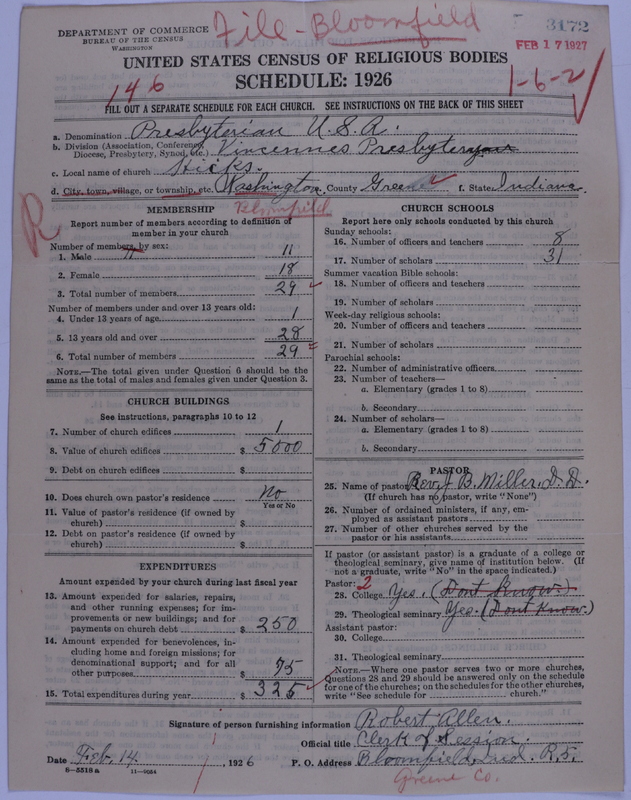 DEPARTMENT OF COMMERCE
BUREAU OF THE CENSUS
WASHINGTON
File - Bloomfield
3172
FEB 17 1927
UNITED STATES CENSUS OF RELIGIOUS BODIES
SCHEDULE: 1926
146
1-6-2
FILL OUT A SEPARATE SCHEDULE FOR EACH CHURCH. SEE INSTRUCTIONS ON THE BACK OF THIS SHEET
a. Denomination Presbyterian U.S.A.
b. Division (Association, Conference, Diocese, Presbytery, Synod, etc.) Vincennes Presbytery
c. Local name of church Hicks.
d. City, town, village, or township, etc. Washington. County Greene f. State Indiana
Bloomfield
R
MEMBERSHIP
Report number of members according to definition of
member in your church
Number of members by sex:
1. Male 11 11
2. Female 18
3. Total number of members 29
Number of members under and over 13 years old:
4. Under 13 years of age 1
5. 13 years old and over 28
6. Total number of members 29
NOTE.—The total given under Question 6 should be the
same as the total of males and females given under Question 3.
CHURCH BUILDINGS
See instructions, paragraphs 10 to 12
7. Number of church edifices 1
8. Value of church edifices $ 5000
9. Debt on church edifices $
10. Does church own pastor's residence No
Yes or No
11. Value of pastor's residence (if owned by
church) $
12. Debt on pastor's residence (if owned by
church) $
EXPENDITURES
Amount expended by your church during last fiscal year
13. Amount expended for salaries, repairs,
and other running expenses; for im-
provements or new buildings; and for
payments on church debt $ 250
14. Amount expended for benevolences, in-
cluding home and foreign missions; for
denominational support; and for all
other purposes $ 75
15. Total expenditures during year $ 325
CHURCH SCHOOLS
Report here only schools conducted by this church
Sunday schools:
16. Number of officers and teachers 8
17. Number of scholars 31
Summer vacation Bible schools:
18. Number of officers and teachers
19. Number of scholars
Week-day religious schools:
20. Number of officers and teachers
21. Number of scholars
Parochial schools:
22. Number of administrative officers
23. Number of teachers—
a. Elementary (grades 1 to 8)
b. Secondary
24. Number of scholars—
a. Elementary (grades 1 to 8)
b. Secondary
PASTOR
25. Name of pastor Rev. J B. Miller, D.D.
(If church has no pastor, write "None")
26. Number of ordained ministers, if any, em-
ployed as assistant pastors
27. Number of other churches served by the
pastor or his assistants
If pastor (or assistant pastor) is a graduate of a college or
theological seminary, give name of institution below. (If
not a graduate, write "No" in the space indicated.)
Pastor: 2
28. College Yes. (Dont Know.)
29. Theological seminary Yes. (Dont Know.)
Assistant pastor:
30. College
31. Theological seminary
NOTE.—Where one pastor serves two or more churches,
Questions 28 and 29 should be answered only on the schedule
for one of the churches; on the schedules for the other churches,
write "See schedule for church."
Signature of person furnishing information Robert Allen.
Official title Clerk of Session.
Date Feb. 14. , 1926 P. O. Address Bloomfield, Ind. R. 5.
8-5518 a 11-9054
Greene Co.